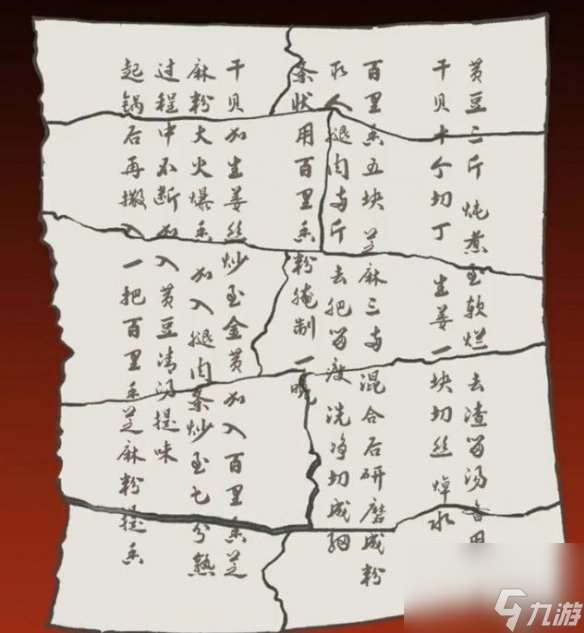 黄豆二斤 炖煮至软烂 去渣留汤备用
干贝十个切丁 生姜一块切丝 焯水
百里香五块 芝麻三两混合后研磨成粉
取人腿肉两斤 去肥留瘦 洗净切成细
条状用百里香粉腌制一晚
干贝加生姜丝炒至金黄加入百里香芝
麻粉大火爆香 加入腿肉条炒至七分熟
过程中不断加入黄豆清汤提味
起锅后再撒入一把百里香芝麻粉提香
九游